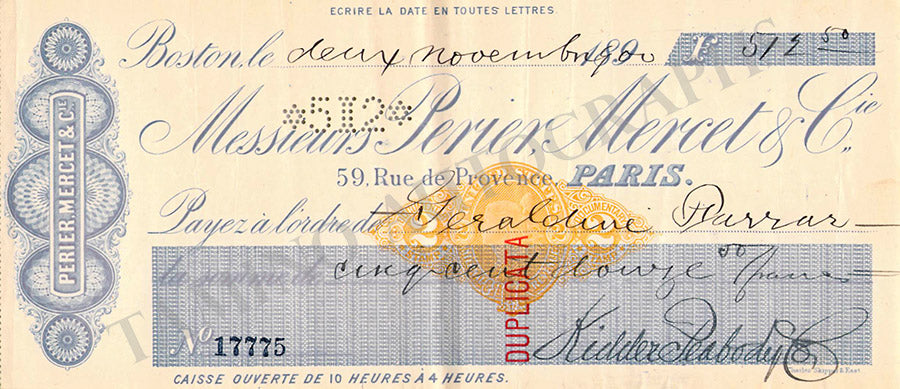 ECRIRE LA DATE EN TOUTES LETTRES.
Boston, le deux novembre 1890 F 512 50
*512*
Messieurs Perier, Mercet & Cie
59, Rue de Provence, PARIS.
Payez à l'ordre de Geraldine Farrar
cinq cent douze 50 francs
DUPLICATA
No 17775
Kidder Peabody & Co
CAISSE OUVERTE DE 10 HEURES À 4 HEURES.
PERIER, MERCET & CIE